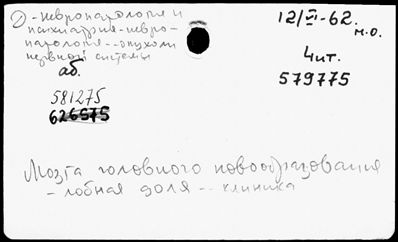 2) - невропатология и
психиатрия - невро-
патология -- опухоли
нервной системы
аб.
581275
626575
12/VI-62.
м.о.
Чит.
579775
Мозга головного новообразования
- лобная доля -- клиника